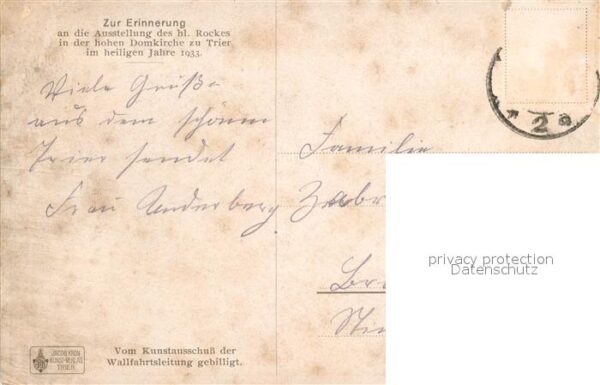 Zur Erinnerung
an die Ausstellung des hl. Rockes
in der hohen Domkirche zu Trier
im heiligen Jahre 1933.
Viele Grüße
aus dem schönen
Trier sendet
Frau Underberg
Familie
Zabr
Br
2 a
privacy protection
Datenschutz
JACOB KRON
KUNST-VERLAG
TRIER
Vom Kunstausschuß der
Wallfahrtsleitung gebilligt.